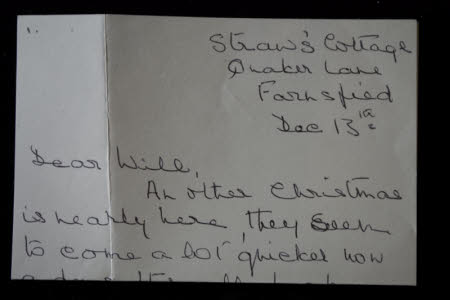 1.
Straw's Cottage
Quaker Lane
Farnsfied
Dec 13th
Dear Will,
An other Christmas
is nearly here, they seem
to come a lot quicker now